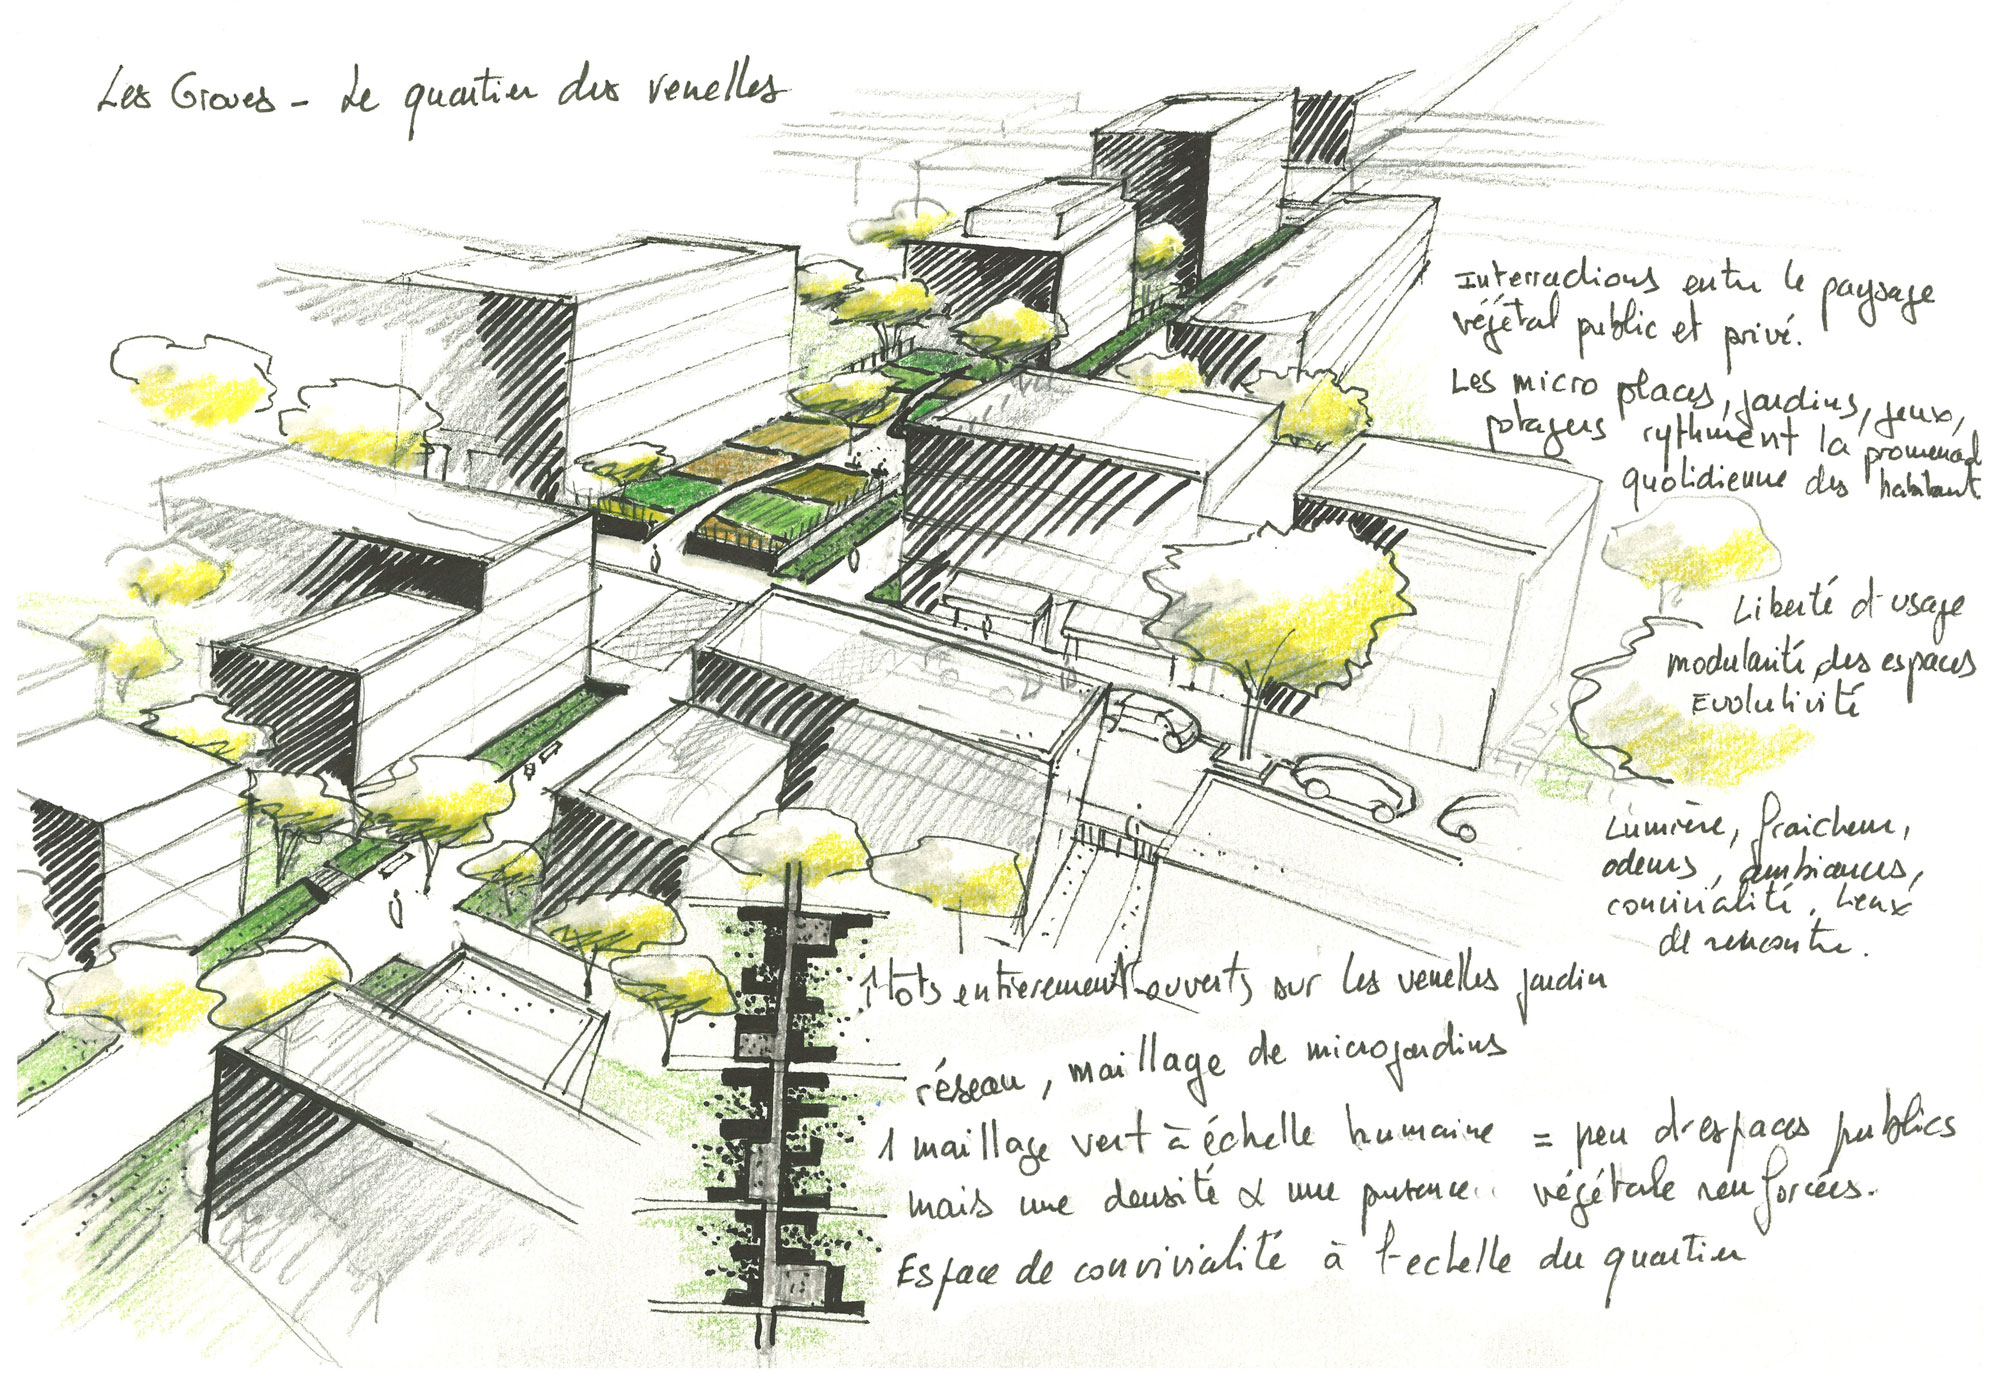 Les Groues - Le quartier des venelles
Interractions entre le paysage
végétal public et privé.
Les micro places, jardins, jeux,
potagers rythment la promenad
quotidienne des habitant
Liberté d'usage
modularité des espaces
Evolutivité
Lumière, fraicheur,
odeurs, ambiances,
convivialité, lieux
de rencontre.
Ilots entierement ouverts sur les venelles jardin
réseau, maillage de microjardins
1 maillage vert à échelle humaine = peu d'espaces publics
mais une densité & une présence végétale renforcées.
Espace de convivialité à l'echelle du quartier